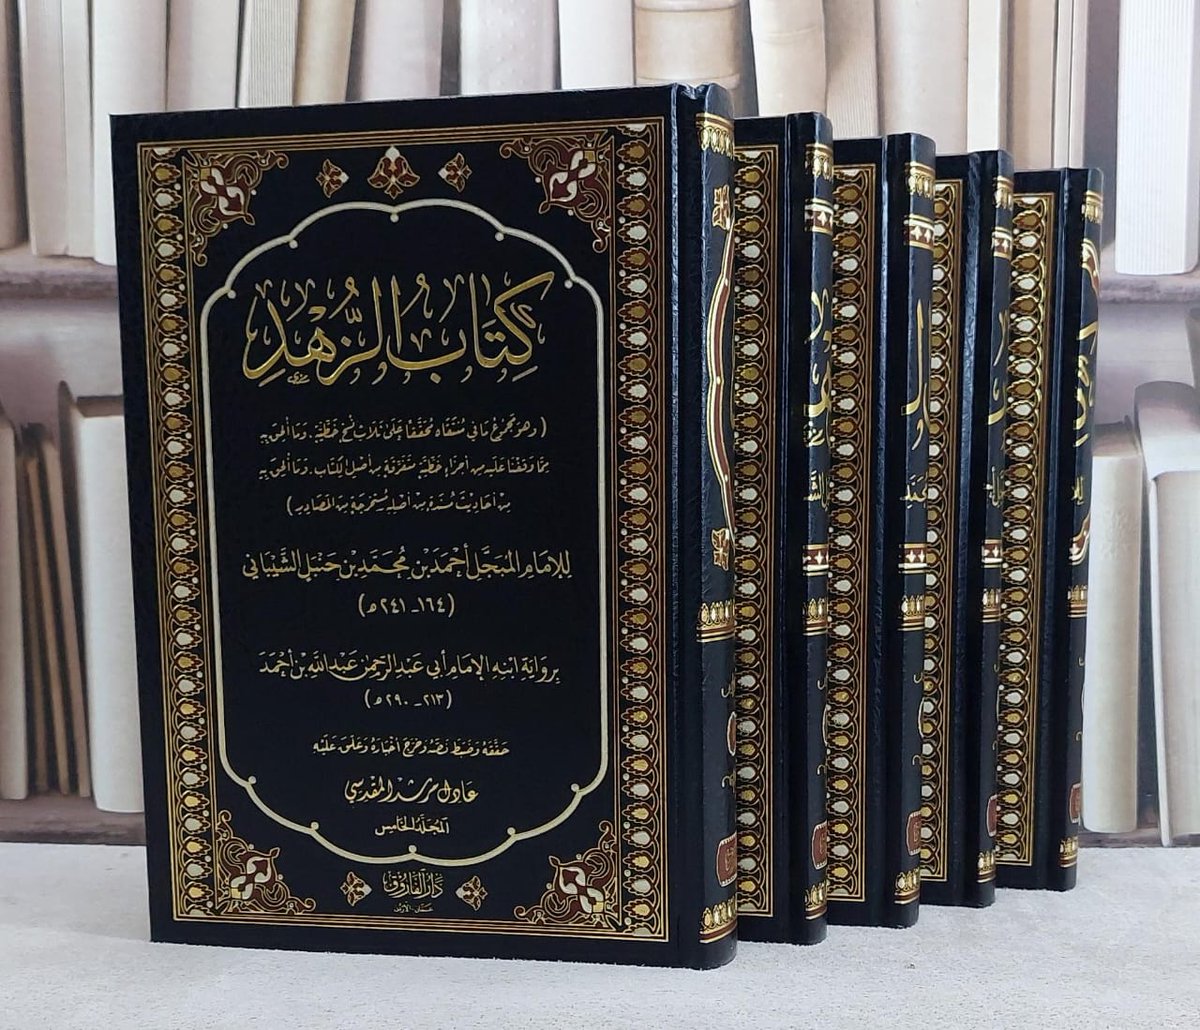 كِتَابُ الزُّهْدِ
(وهو مخرج مافي مستقاه محققا على ثلاث نسخ خطية، وما ألحق به
مما وقفنا عليه من أجزاء خطية متفرقة من أصل الكتاب، وما ألحق به
من أحاديث مسندة من أصله مستخرجة من المصادر)
للإمام المبجل أحمد بن محمد بن حنبل الشيباني
(١٦٤ - ٢٤١ ه)
برواية ابنه الإمام أبي عبد الرحمن عبد الله بن أحمد
(٢١٣ - ٢٩٠ ه)
حققه وضبط نصه وخرج أخباره وعلق عليه
عادل مرشد المقدسي
المجلد الخامس
دار الفاروق
عمان - الأردن